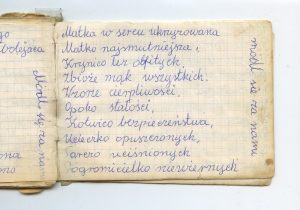 go
bolejąca
Módl się za na
ona
no
Matka w sercu ukrzyżowana
Matko najsmutniejsza,
Krynico łez obfitych,
Zbioże mąk wszystkich.
Wzorze cierpliwości,
Opoko stałości,
Kotwico bezpieczeństwa,
Ucieczko opuszczonych,
Tarczo uciśnionych
Pogromicielko niewiernych
módl się za nami